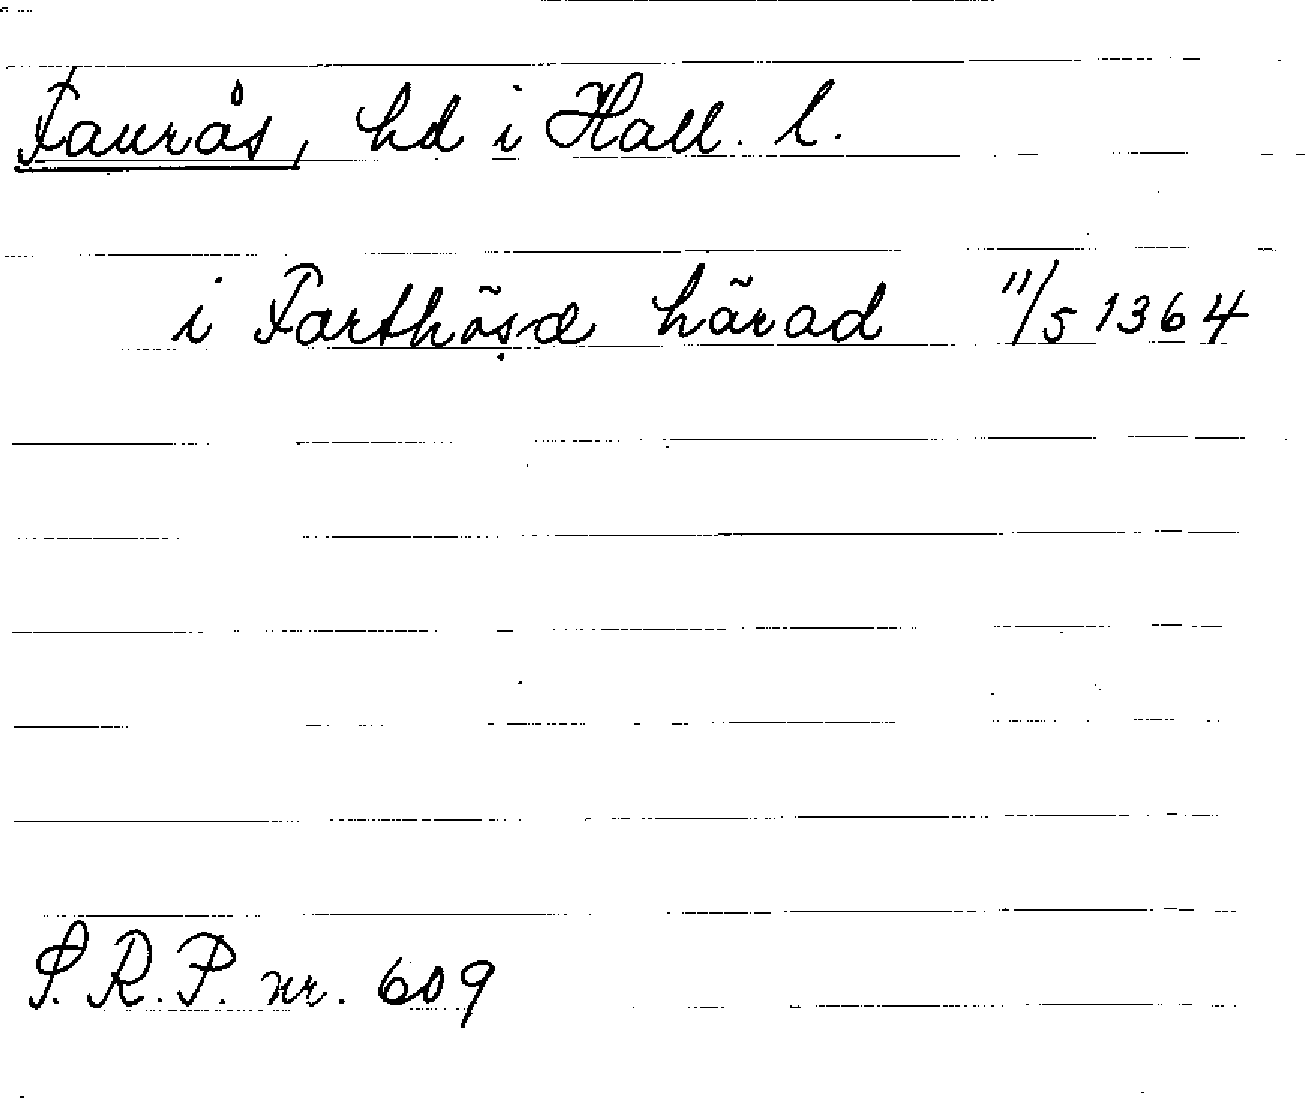 Faurås, hd i Hall. l.
i Farthösæ härad 11/5 1364
S.R.P. nr. 609